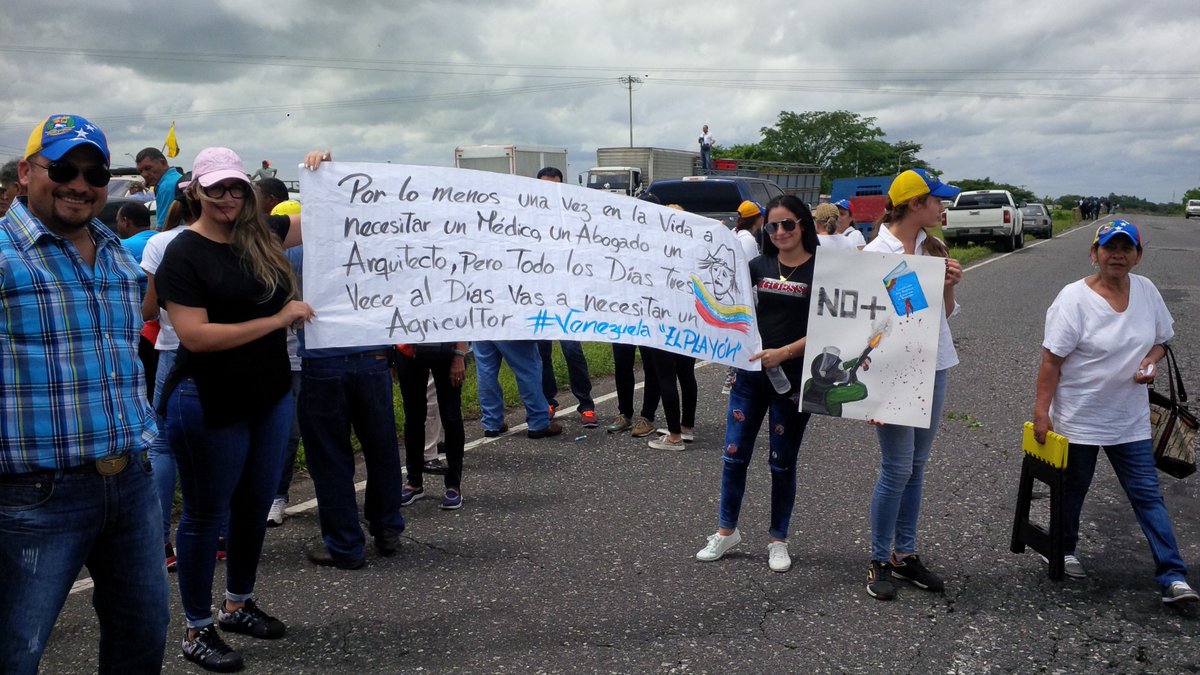 Por lo menos una vez en la Vida a
necesitar un Médico, un Abogado un
Arquitecto, Pero Todo los Días Tres
Vece al Días Vas a necesitar un
Agricultor #Venezuela "EL PLAYÓN"
NO+